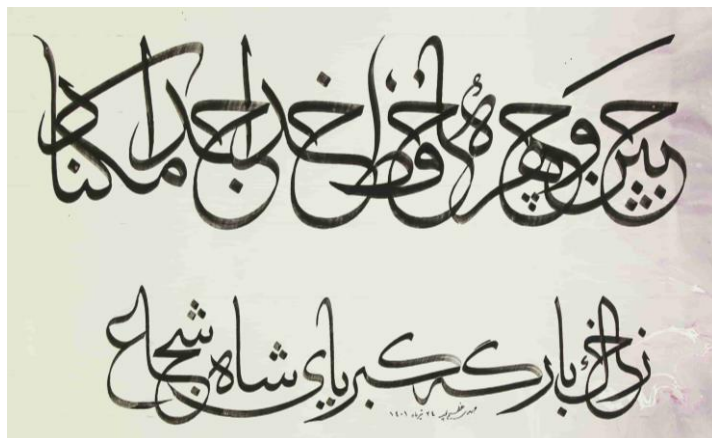 جبین و چهرهٔ حافظ خدا جدا مکناد
ز خاک بارگه کبریای شاه شجاع
۲۴ تیرماه ۱۴۰۱